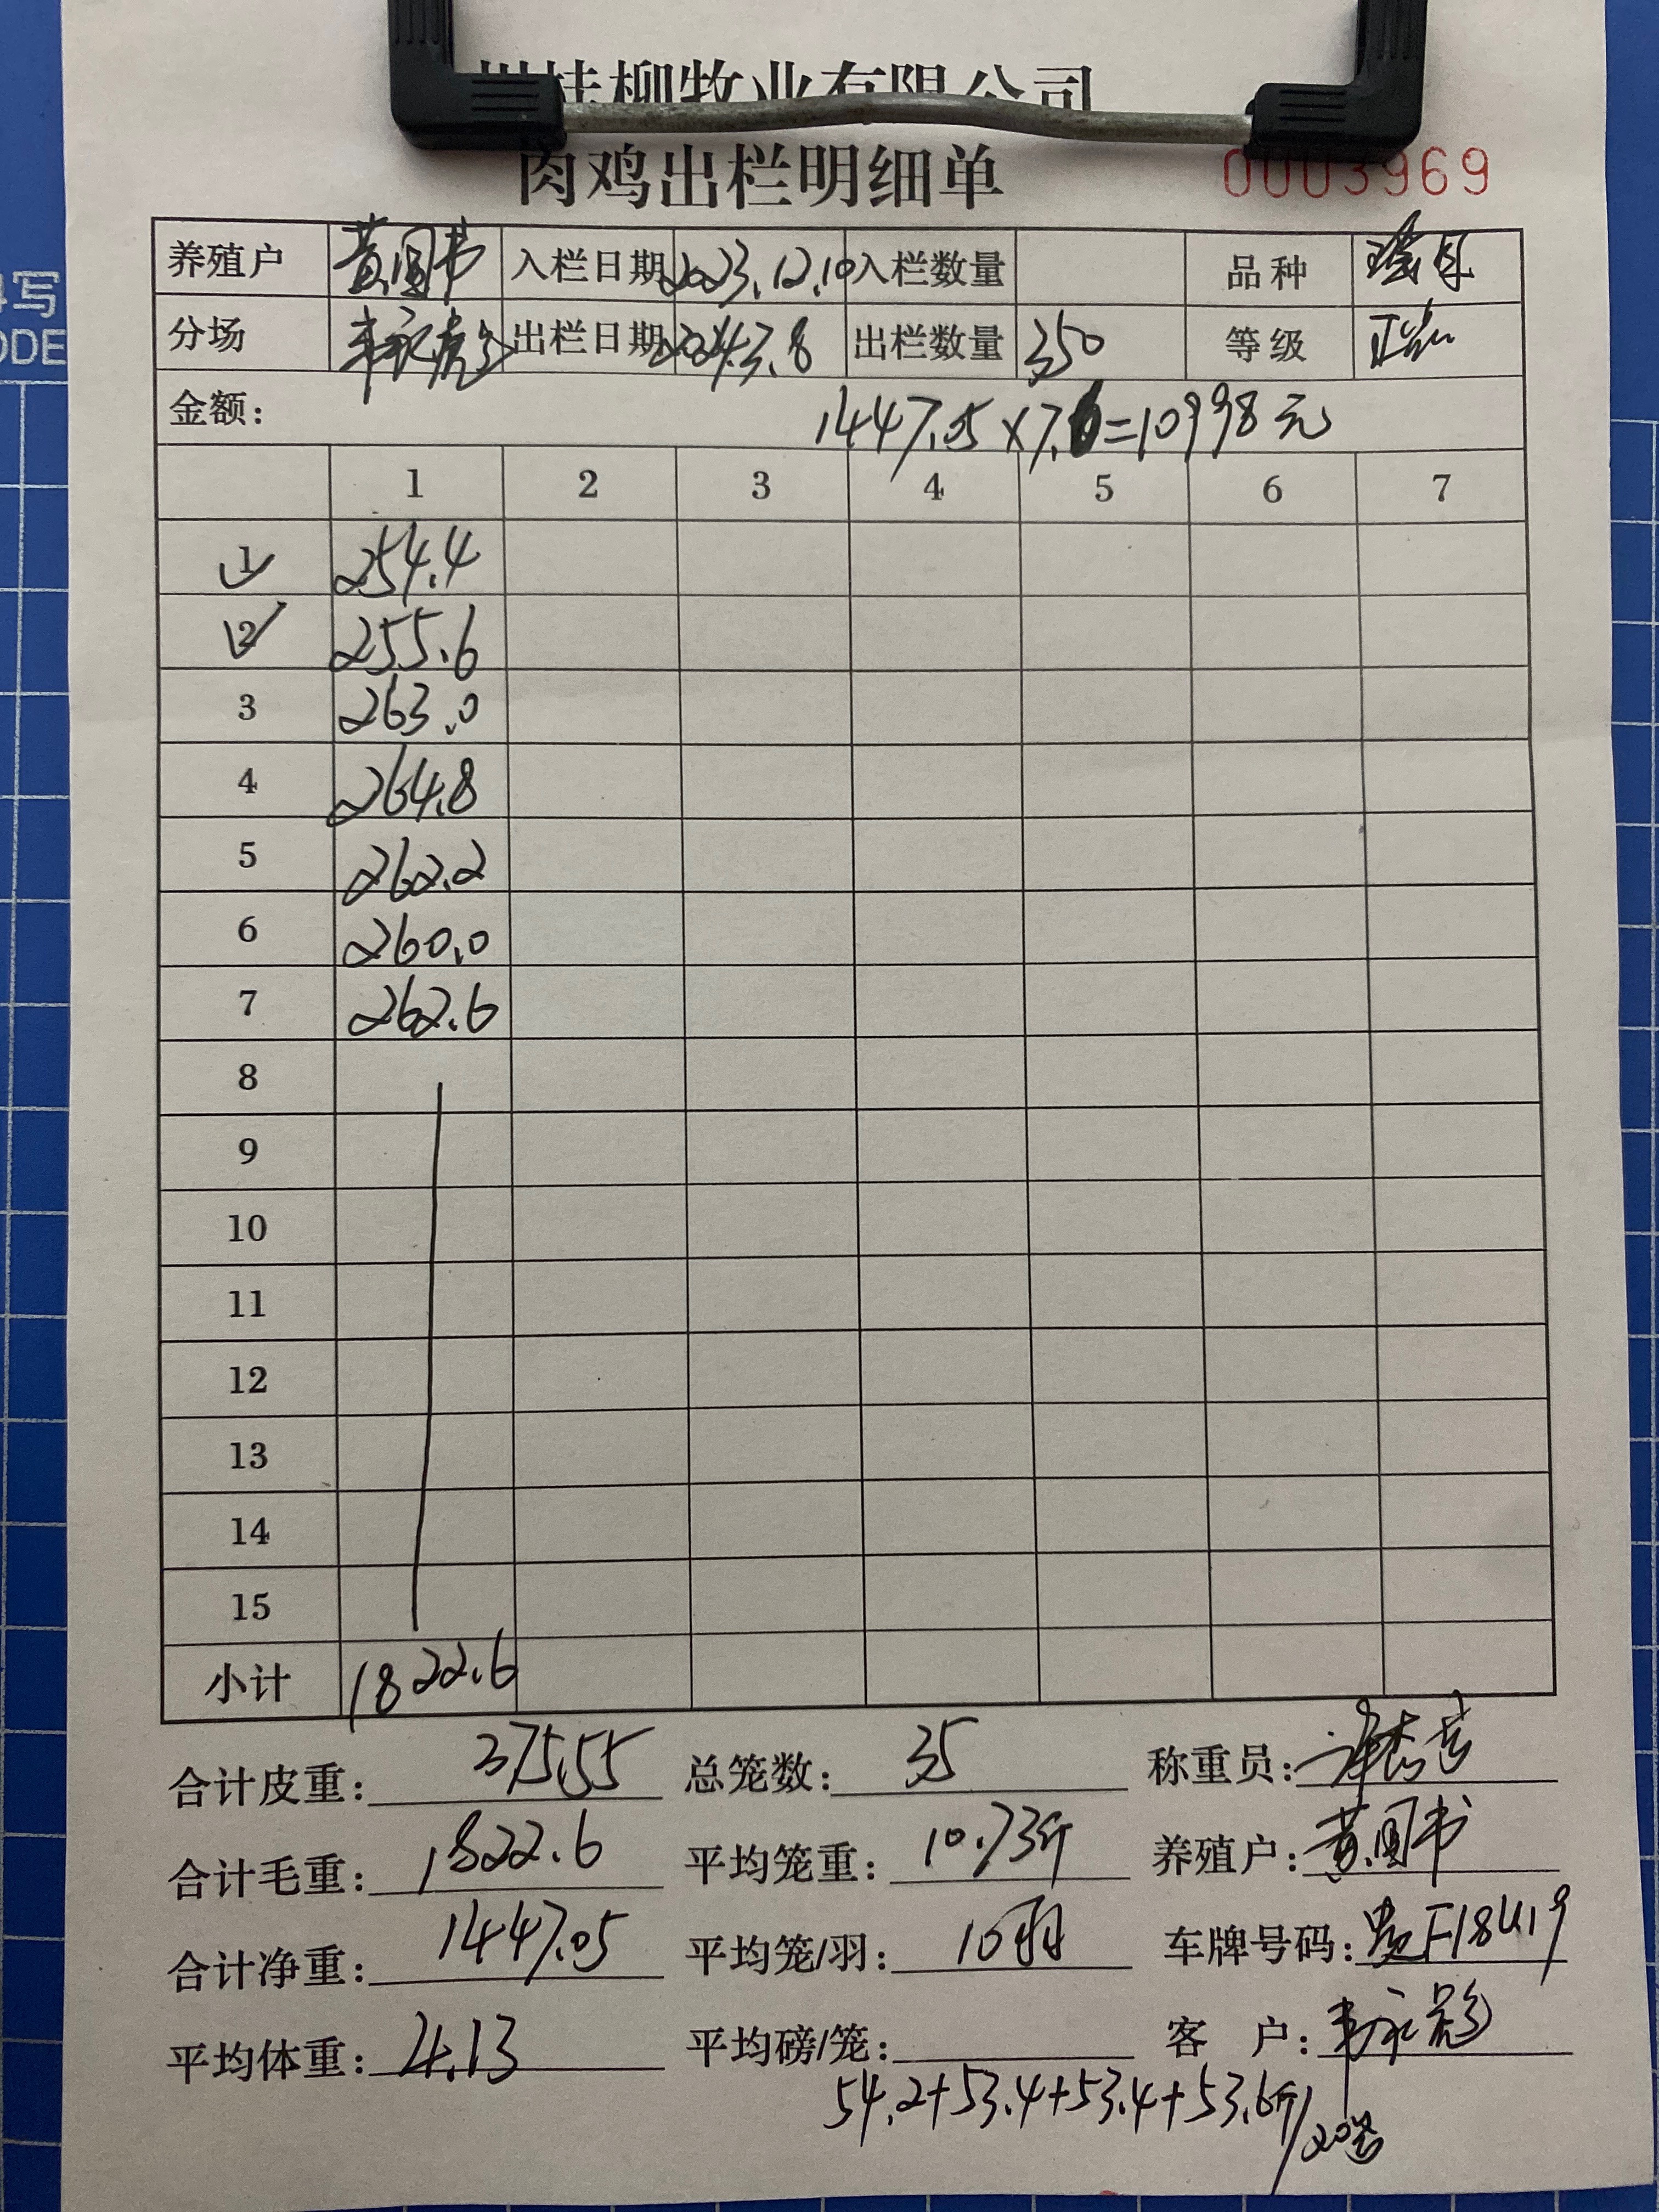 桂柳牧业有限公司
肉鸡出栏明细单 0003969
养殖户 黄图书 入栏日期 2023.12.10 入栏数量 品种 瑶鸡
分场 出栏日期 2024.3.8 出栏数量 350 等级
金额: 1447.05×7.6=10998元
1 2 3 4 5 6 7
1 254.4
2 255.6
3 263.0
4 264.8
5 262.2
6 260.0
7 262.6
8
9
10
11
12
13
14
15
小计 1822.6
合计皮重: 375.55 总笼数: 35 称重员:
合计毛重: 1822.6 平均笼重: 10.73斤 养殖户: 黄图书
合计净重: 1447.05 平均笼/羽: 10羽 车牌号码: 贵F18419
平均体重: 4.13 平均磅/笼: 客 户: 韦永彪
54.2+53.4+53.4+53.6斤/20笼